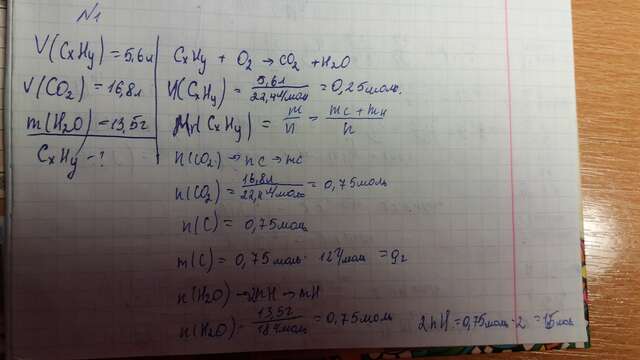 N1
V(CxHy) = 5,6л
V(CO2) = 16,8л
m(H2O) = 13,5г
CxHy - ?
CxHy + O2 → CO2 + H2O
n(CxHy) = 5,6л / 22,4л/моль = 0,25моль.
M(CxHy) = m / n = mC + mH / n
n(CO2) → nC → mC
n(CO2) = 16,8л / 22,4л/моль = 0,75моль
n(C) = 0,75моль
m(C) = 0,75моль · 12г/моль = 9г
n(H2O) → nH → mH
n(H2O) = 13,5г / 18г/моль = 0,75моль 2nH = 0,75моль · 2 = 1,5моль